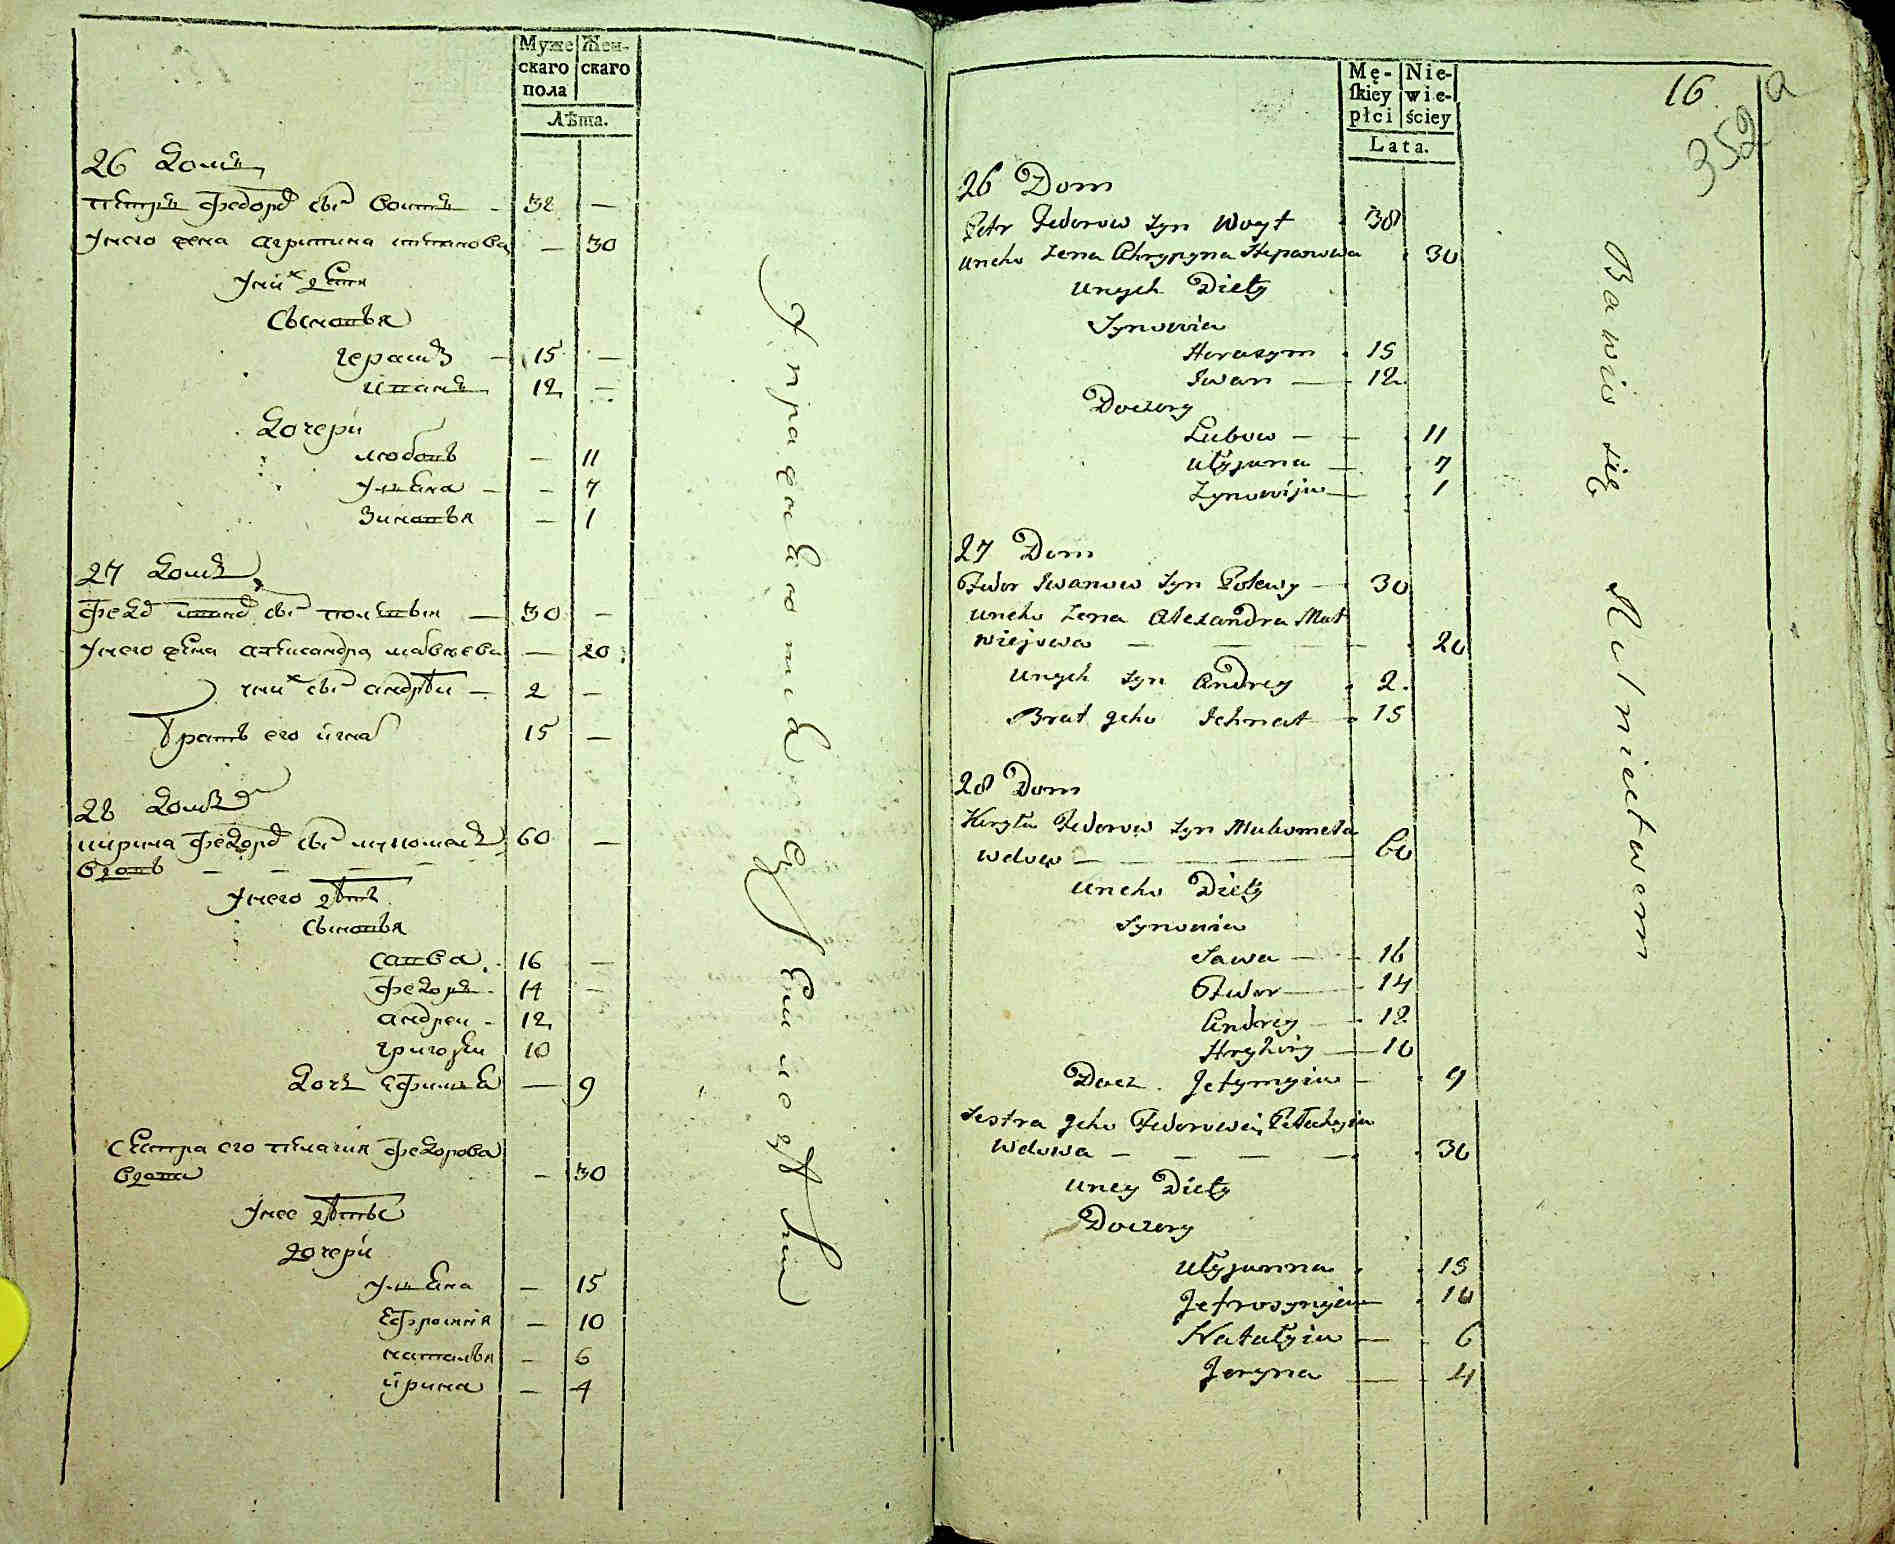 Муже Жен-
скаго скаго
пола
Лѣта.
26 домъ
петръ федоровъ сынъ воитъ - 32 —
унего жена агрипина степанова — 30
уних дети
Сыновья
герасимъ — 15 —
иванъ 12 —
дочери
любовь — 11
улiяна — — 7
зиновья — 1
27 домъ
федоръ ивановъ сынъ полевыя — 30 —
унего жена александра матвеева — 20
уних сынъ андрей — 2 —
братъ его игнатъ 15 —
28 домъ
кирила федоровъ сынъ 60 —
вдовъ — — — —
унего дети
сыновья
савва 16 —
федоръ 14 —
андреи - 12
григореи 10
дочь ефимия — 9
сестра его пелагия федорова
вдова — 30
унее дети
дочери
улияна — 15
ефросиния — 10
наталья — 6
ирина — 4
упражняются
Mę- Nie-
skiey wie-
płci ściey
Lata.
16
352 a
26 Dom
Petr Fedorow syn Woyt 38
uneho żena Ahrypyna Stepanowa 30
unych Diety
Synowia
Herasym 15
Iwan — 12
Doczery
Lubow — — 11
Ulyjana — 7
Zynowija — 1
27 Dom
Fedor Iwanow syn Polewy — 30
uneho żena Alexandra Mat
wiejewa — — — — 20
unych syn Andrey 2
Brat jeho Ichnat 15
28 Dom
Kiryła Fedorow syn
wdow — — — — 60
uneho Diety
Synowia
Sawa — 16
Fedor — 14
Andrey — 12
Hryhory — 10
Docz. Jefymyia — 9
Sestra jeho Fedorowa, Pełahyia
wdowa — — — — 30
uney Diety
Doczery
Ulyjanna 15
Jefrosynyia 10
Natalyia — 6
Jeryna — 4
Bawio się Rolnictwem